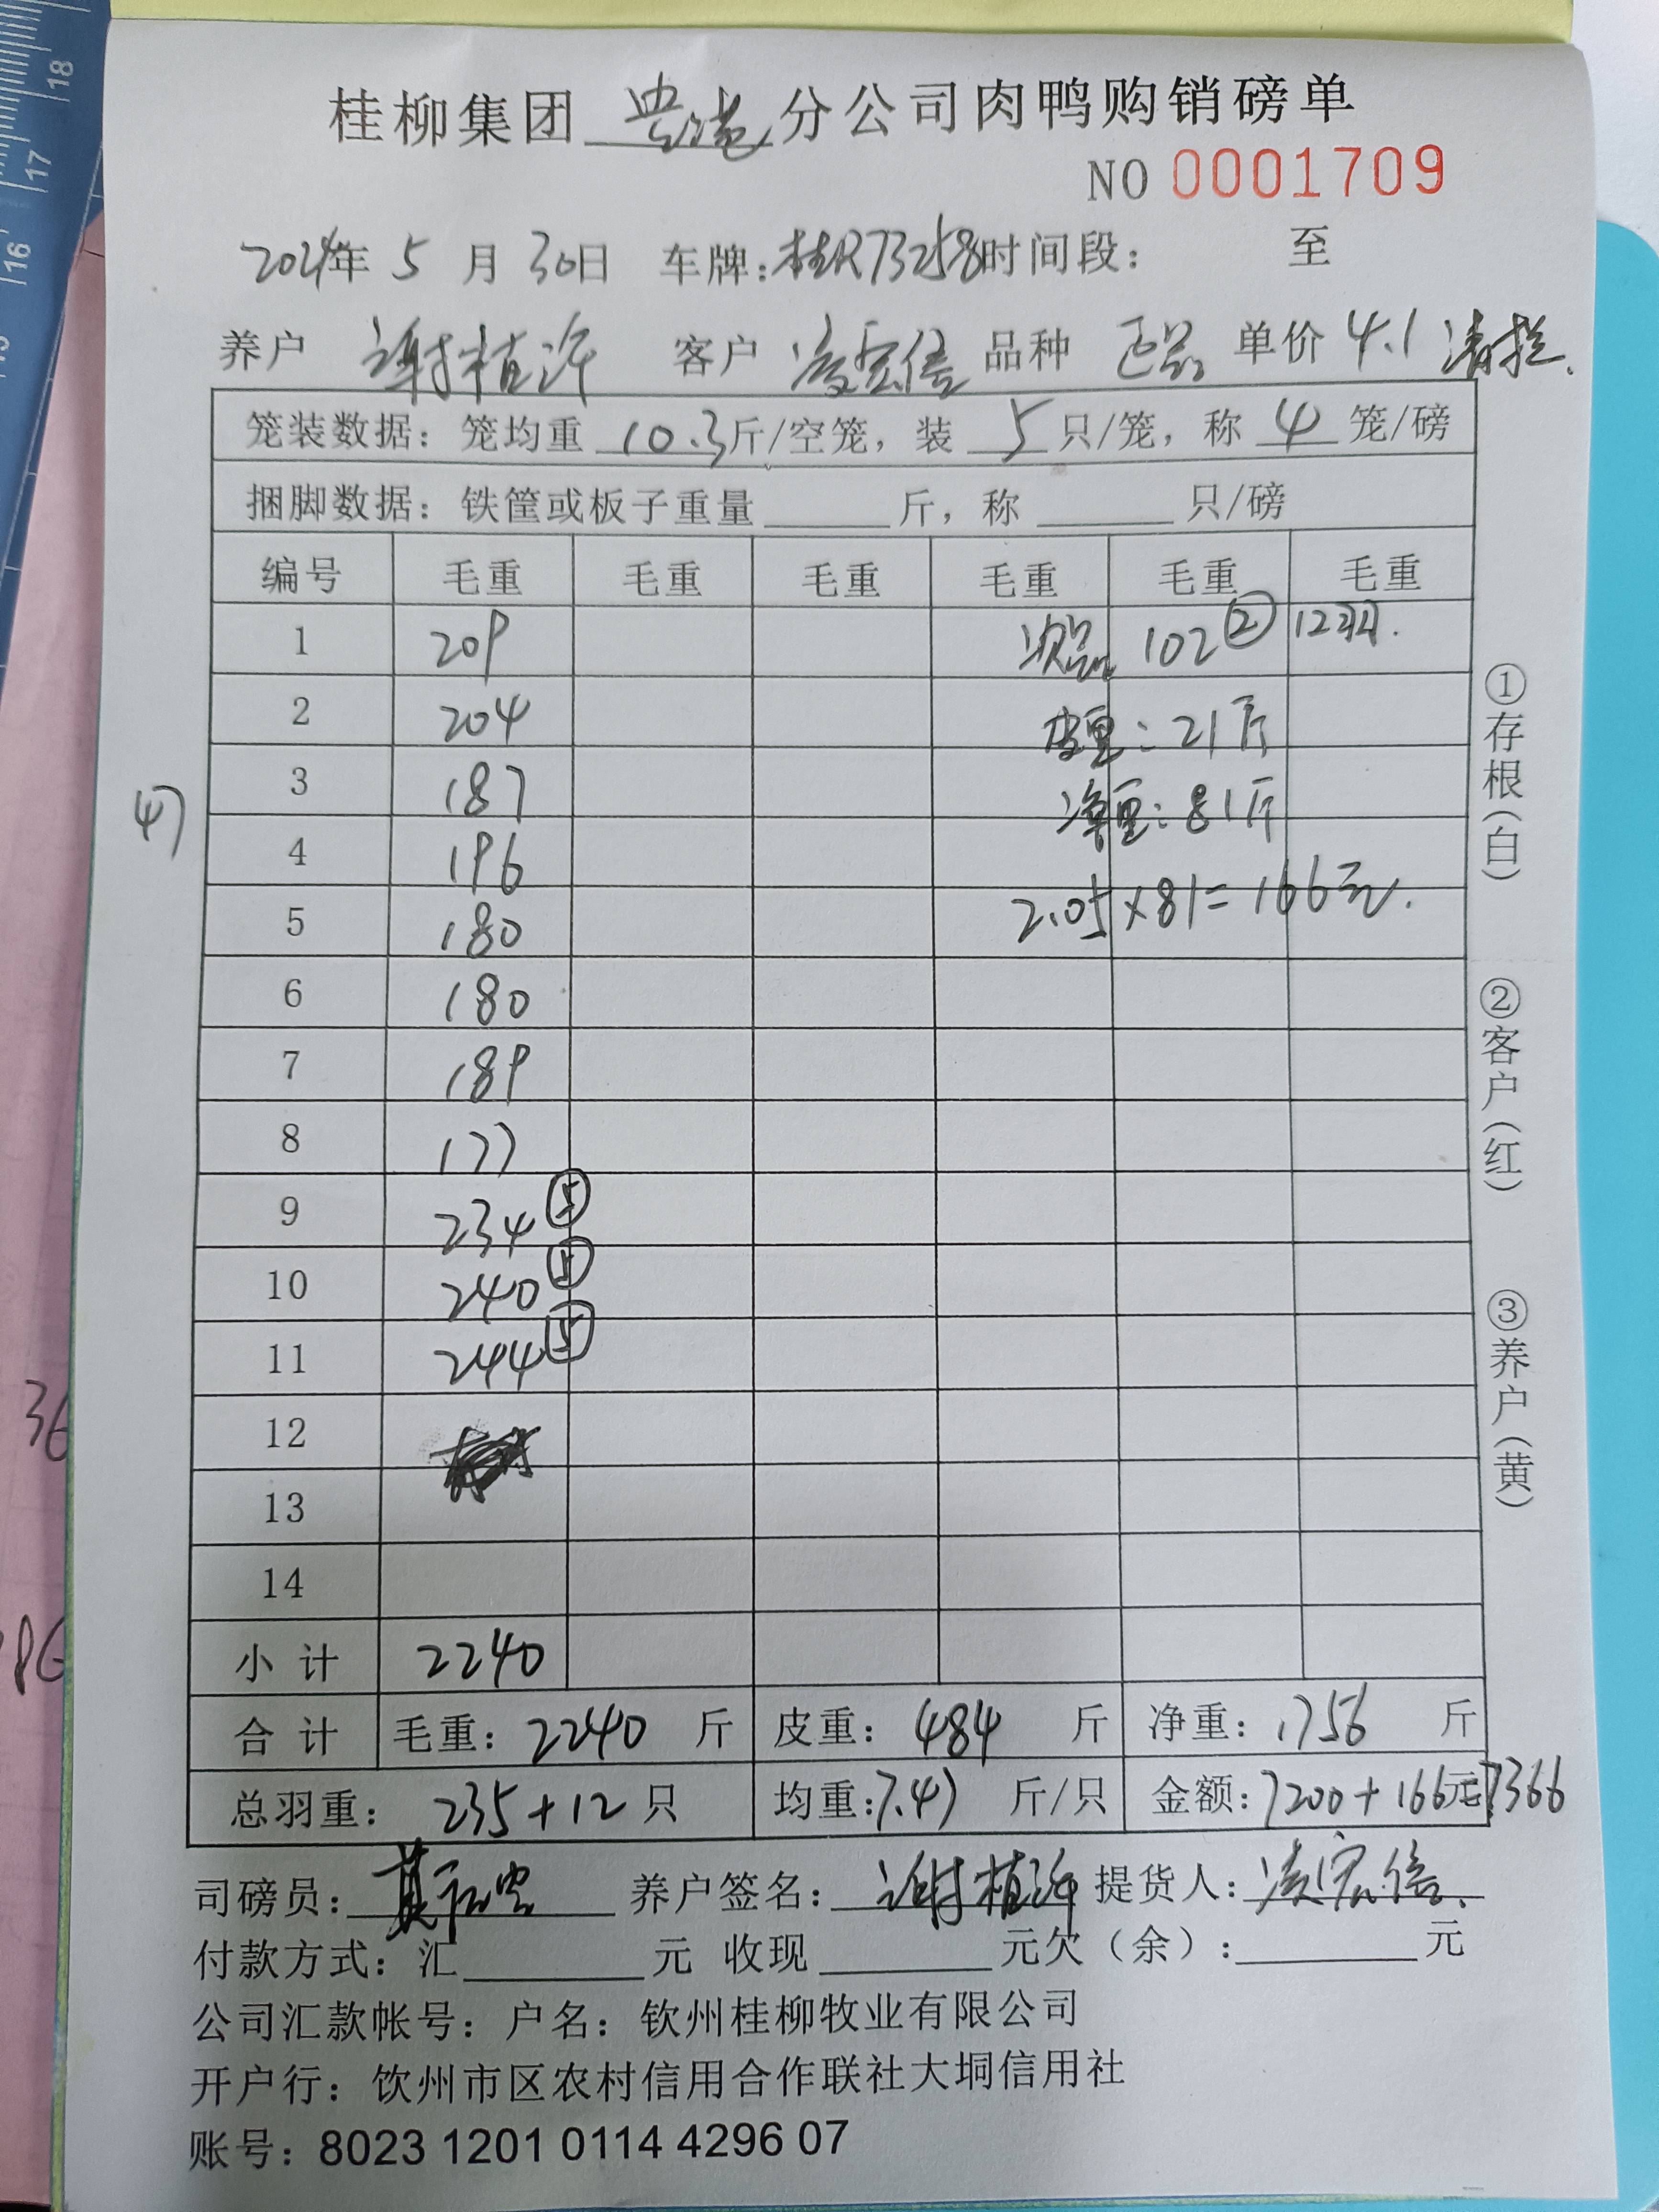 18
17
16
桂柳集团 贵港 分公司肉鸭购销磅单
NO 0001709
2024年 5 月 30日 车牌:桂R73258时间段: 至
养户 谢植许 客户 凌宏倍 品种 正品 单价 4.1 清拦.
笼装数据: 笼均重 10.3斤/空笼, 装 5 只/笼, 称 4 笼/磅
捆脚数据: 铁筐或板子重量 斤, 称 只/磅
编号 毛重 毛重 毛重 毛重 毛重 毛重
1 209 次品 102 ② 12羽.
2 204 皮重: 21斤
3 187 净重: 81斤
47
4 196
5 180 2.05×81=166元.
6 180
7 189
8 177
9 234 ⑤
10 240 ⑤
11 244 ⑤
12
13
14
小 计 2240
合 计 毛重: 2240 斤 皮重: 484 斤 净重: 1756 斤
总羽重: 235+12 只 均重:7.47 斤/只 金额:7200+166元=7366
司磅员: 养户签名: 谢植许 提货人: 凌宏倍.
付款方式: 汇 元 收现 元欠(余): 元
公司汇款帐号: 户名: 钦州桂柳牧业有限公司
开户行: 饮州市区农村信用合作联社大垌信用社
账号: 8023 1201 0114 4296 07
①存根(白)
②客户(红)
③养户(黄)
36